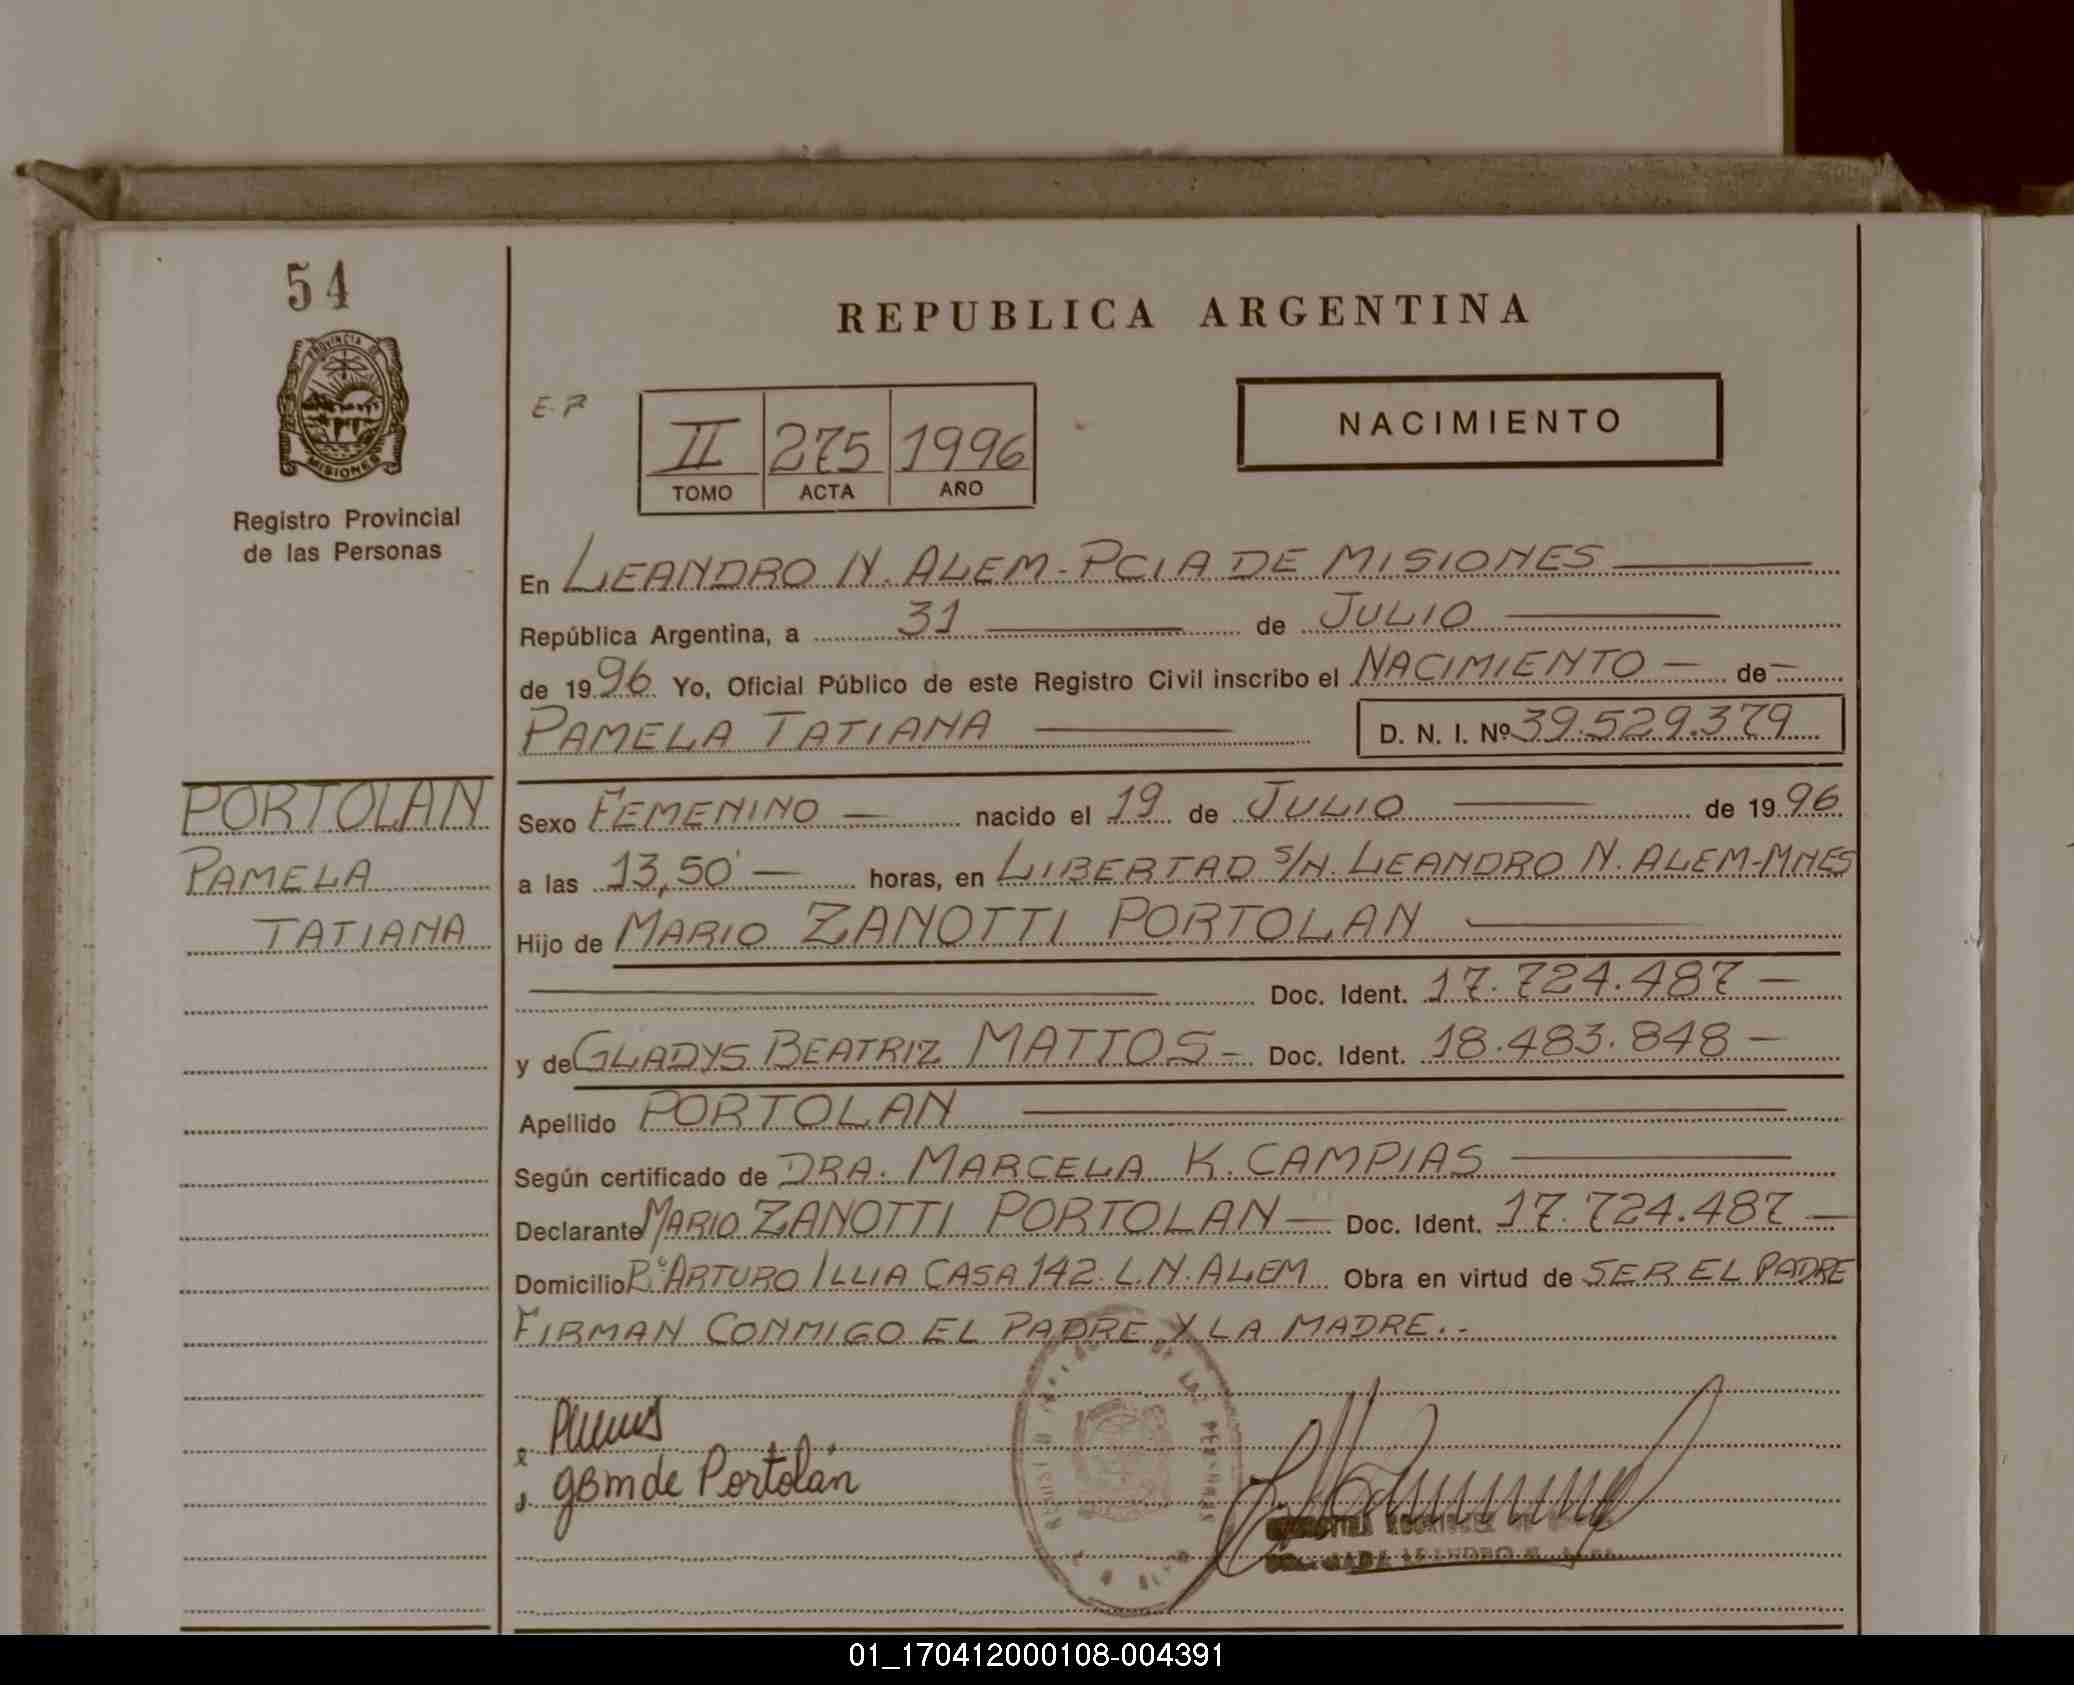 54
PROVINCIA DE
MISIONES
Registro Provincial
de las Personas
PORTOLAN
PAMELA
TATIANA
REPUBLICA ARGENTINA
E.P
II 275 1996
TOMO ACTA AÑO
NACIMIENTO
En LEANDRO N. ALEM - PCIA DE MISIONES
República Argentina, a 31 de JULIO
de 1996 Yo, Oficial Público de este Registro Civil inscribo el NACIMIENTO — de —
PAMELA TATIANA D. N. I. Nº 39.529.379
Sexo FEMENINO — nacido el 19 de JULIO de 1996
a las 13,50' — horas, en LIBERTAD S/N. LEANDRO N. ALEM-MNES
Hijo de MARIO ZANOTTI PORTOLAN
Doc. Ident. 17.724.487 —
y de GLADYS BEATRIZ MATTOS - Doc. Ident. 18.483.848 —
Apellido PORTOLAN
Según certificado de DRA. MARCELA K. CAMPIAS
Declarante MARIO ZANOTTI PORTOLAN — Doc. Ident. 17.724.487 —
Domicilio Bº ARTURO ILLIA CASA 142. L.N. ALEM Obra en virtud de SER EL PADRE
FIRMAN CONMIGO EL PADRE Y LA MADRE.-
de Portolán
DE LAS PERSONAS
LEANDRO N. ALEM
01_170412000108-004391